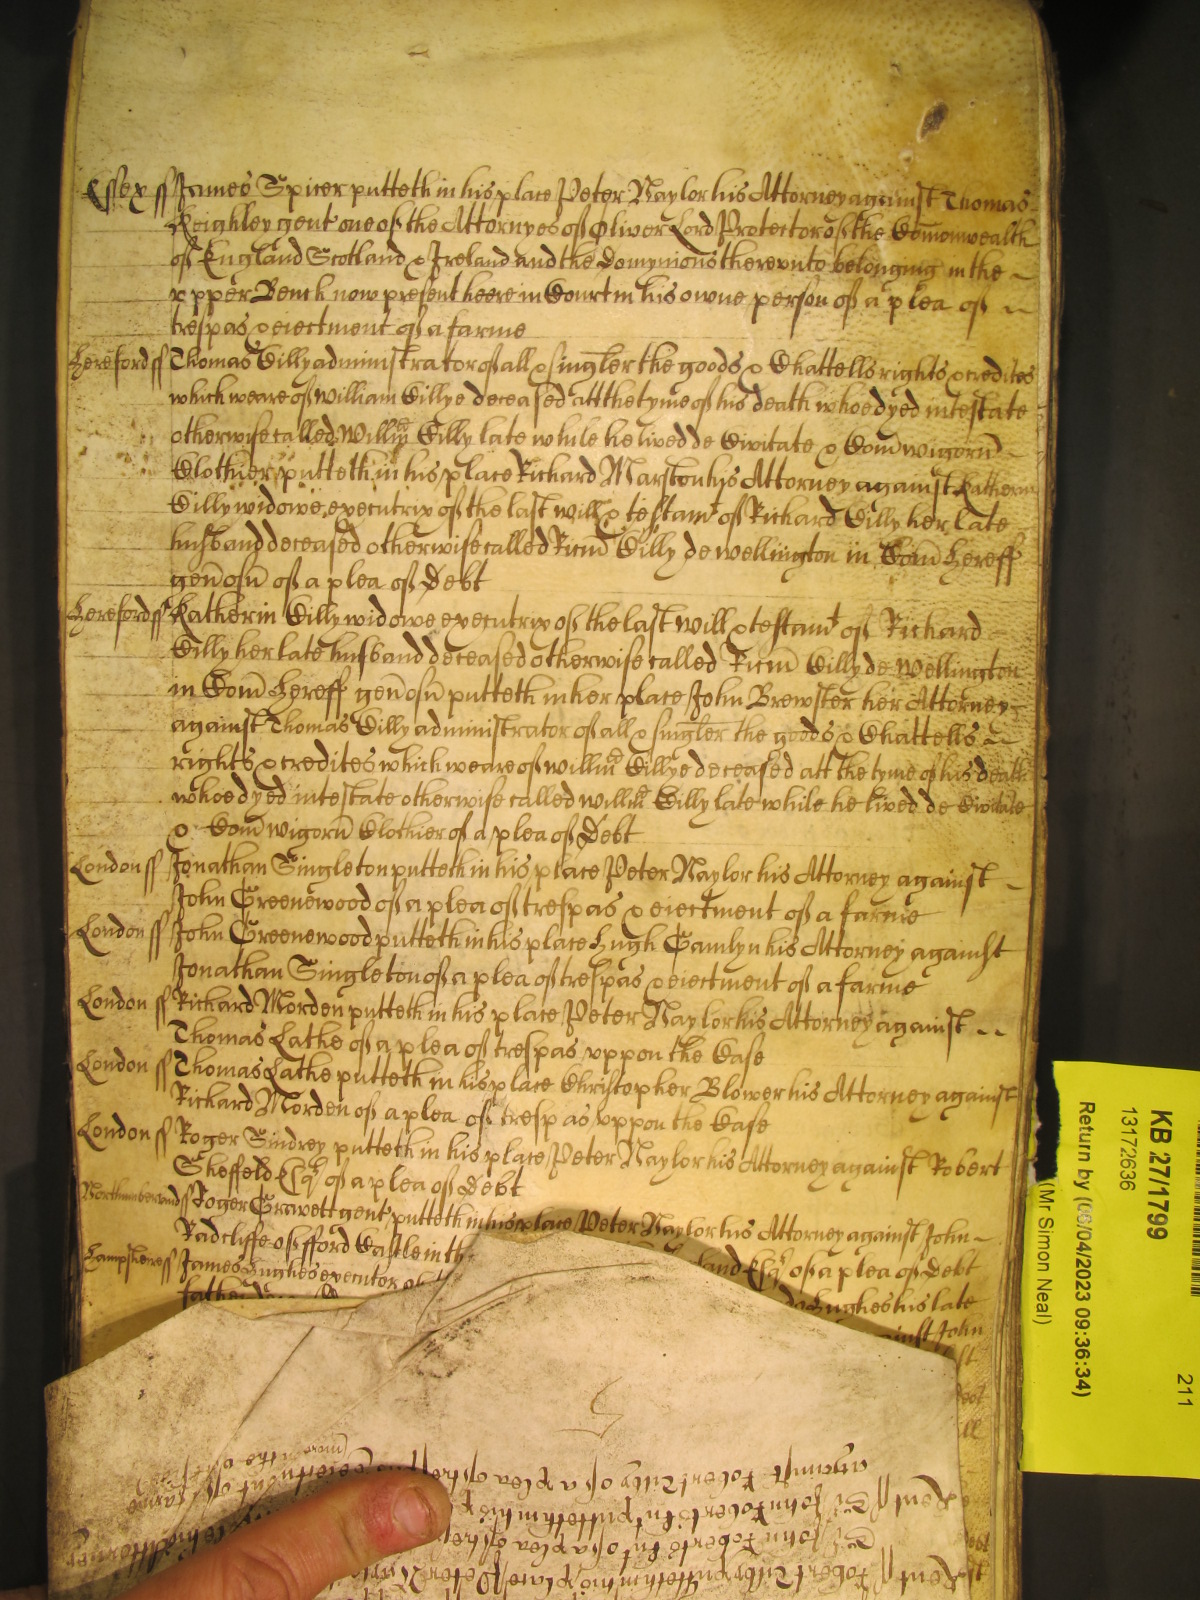 Essex ss James Spicer putteth in his place Peter Naylor his Attorney against Thomas
Keighley gent one of the Attornyes of Oliver Lord Protector of the Com̄onwealth
of England Scotland & Ireland and the Domynions therevnto belonging in the
vpper Bench now present heere in Court in his owne person of a plea of
trespas & eiectment of a farme
Hereford ss Thomas Cilly administrator of all & singler the goods & Chattells rights & credites
which weare of William Cillye deceased att the tyme of his death whoe dyed intestate
otherwise called Willm̄ Cilly late while he lived de Civitate & Com̄ wigorn̄
Clothier putteth in his place Richard Marston his Attorney against Katherin
Cilly widowe executrix of the last will & testamt of Richard Cilly her late
husband deceased otherwise called Ricūm Cilly de wellington in Com̄ Hereff
gen̄osn̄ of a plea of Debt
Hereford ss Katherin Cilly widowe executrix of the last will & testamt of Richard
Cilly her late husband deceased otherwise called Ricūm Cilly de Wellington
in Com̄ Hereff gen̄osn̄ putteth in her place John Brewster her Attorney
against Thomas Cilly administrator of all & singler the goods & Chattells
rights & credites which weare of willm̄ Cillye deceased att the tyme of his death
whoe dyed intestate otherwise called willm̄ Cilly late while he lived de Civitate
& Com̄ wigorn̄ Clothier of a plea of Debt
London ss Jonathan Singleton putteth in his place Peter Naylor his Attorney against
John Greenewood of a plea of trespas & eiectment of a farme
London ss John Greenewood putteth in his place Hugh Gamlyn his Attorney against
Jonathan Singleton of a plea of trespas & eiectment of a farme
London ss Richard Morden putteth in his place Peter Naylor his Attorney against
Thomas Lathe of a plea of trespas vppon the Case
London ss Thomas Lathe putteth in his place Christopher Blower his Attorney against
Richard Morden of a plea of trespas vppon the Case
London ss Roger Sindrey putteth in his place Peter Naylor his Attorney against Robert
Sheffeld Esqr of a plea of Debt
Northumberland ss Roger Grawett gent putteth in his place Peter Naylor his Attorney against John
Radcliffe of fford Castle in th land Esqr of a plea of Debt
Hampshere ss James Hughes executor of Hughes his late
father against John
KB 27/1799
13172636
Return by (06/04/2023 09:36:34)
(Mr Simon Neal)
211
against Robert Tilby of a plea of
Kent ss John Roberts putteth in his
John Roberts of a plea of
Kent ss Robert Tilby putteth in his place Peter